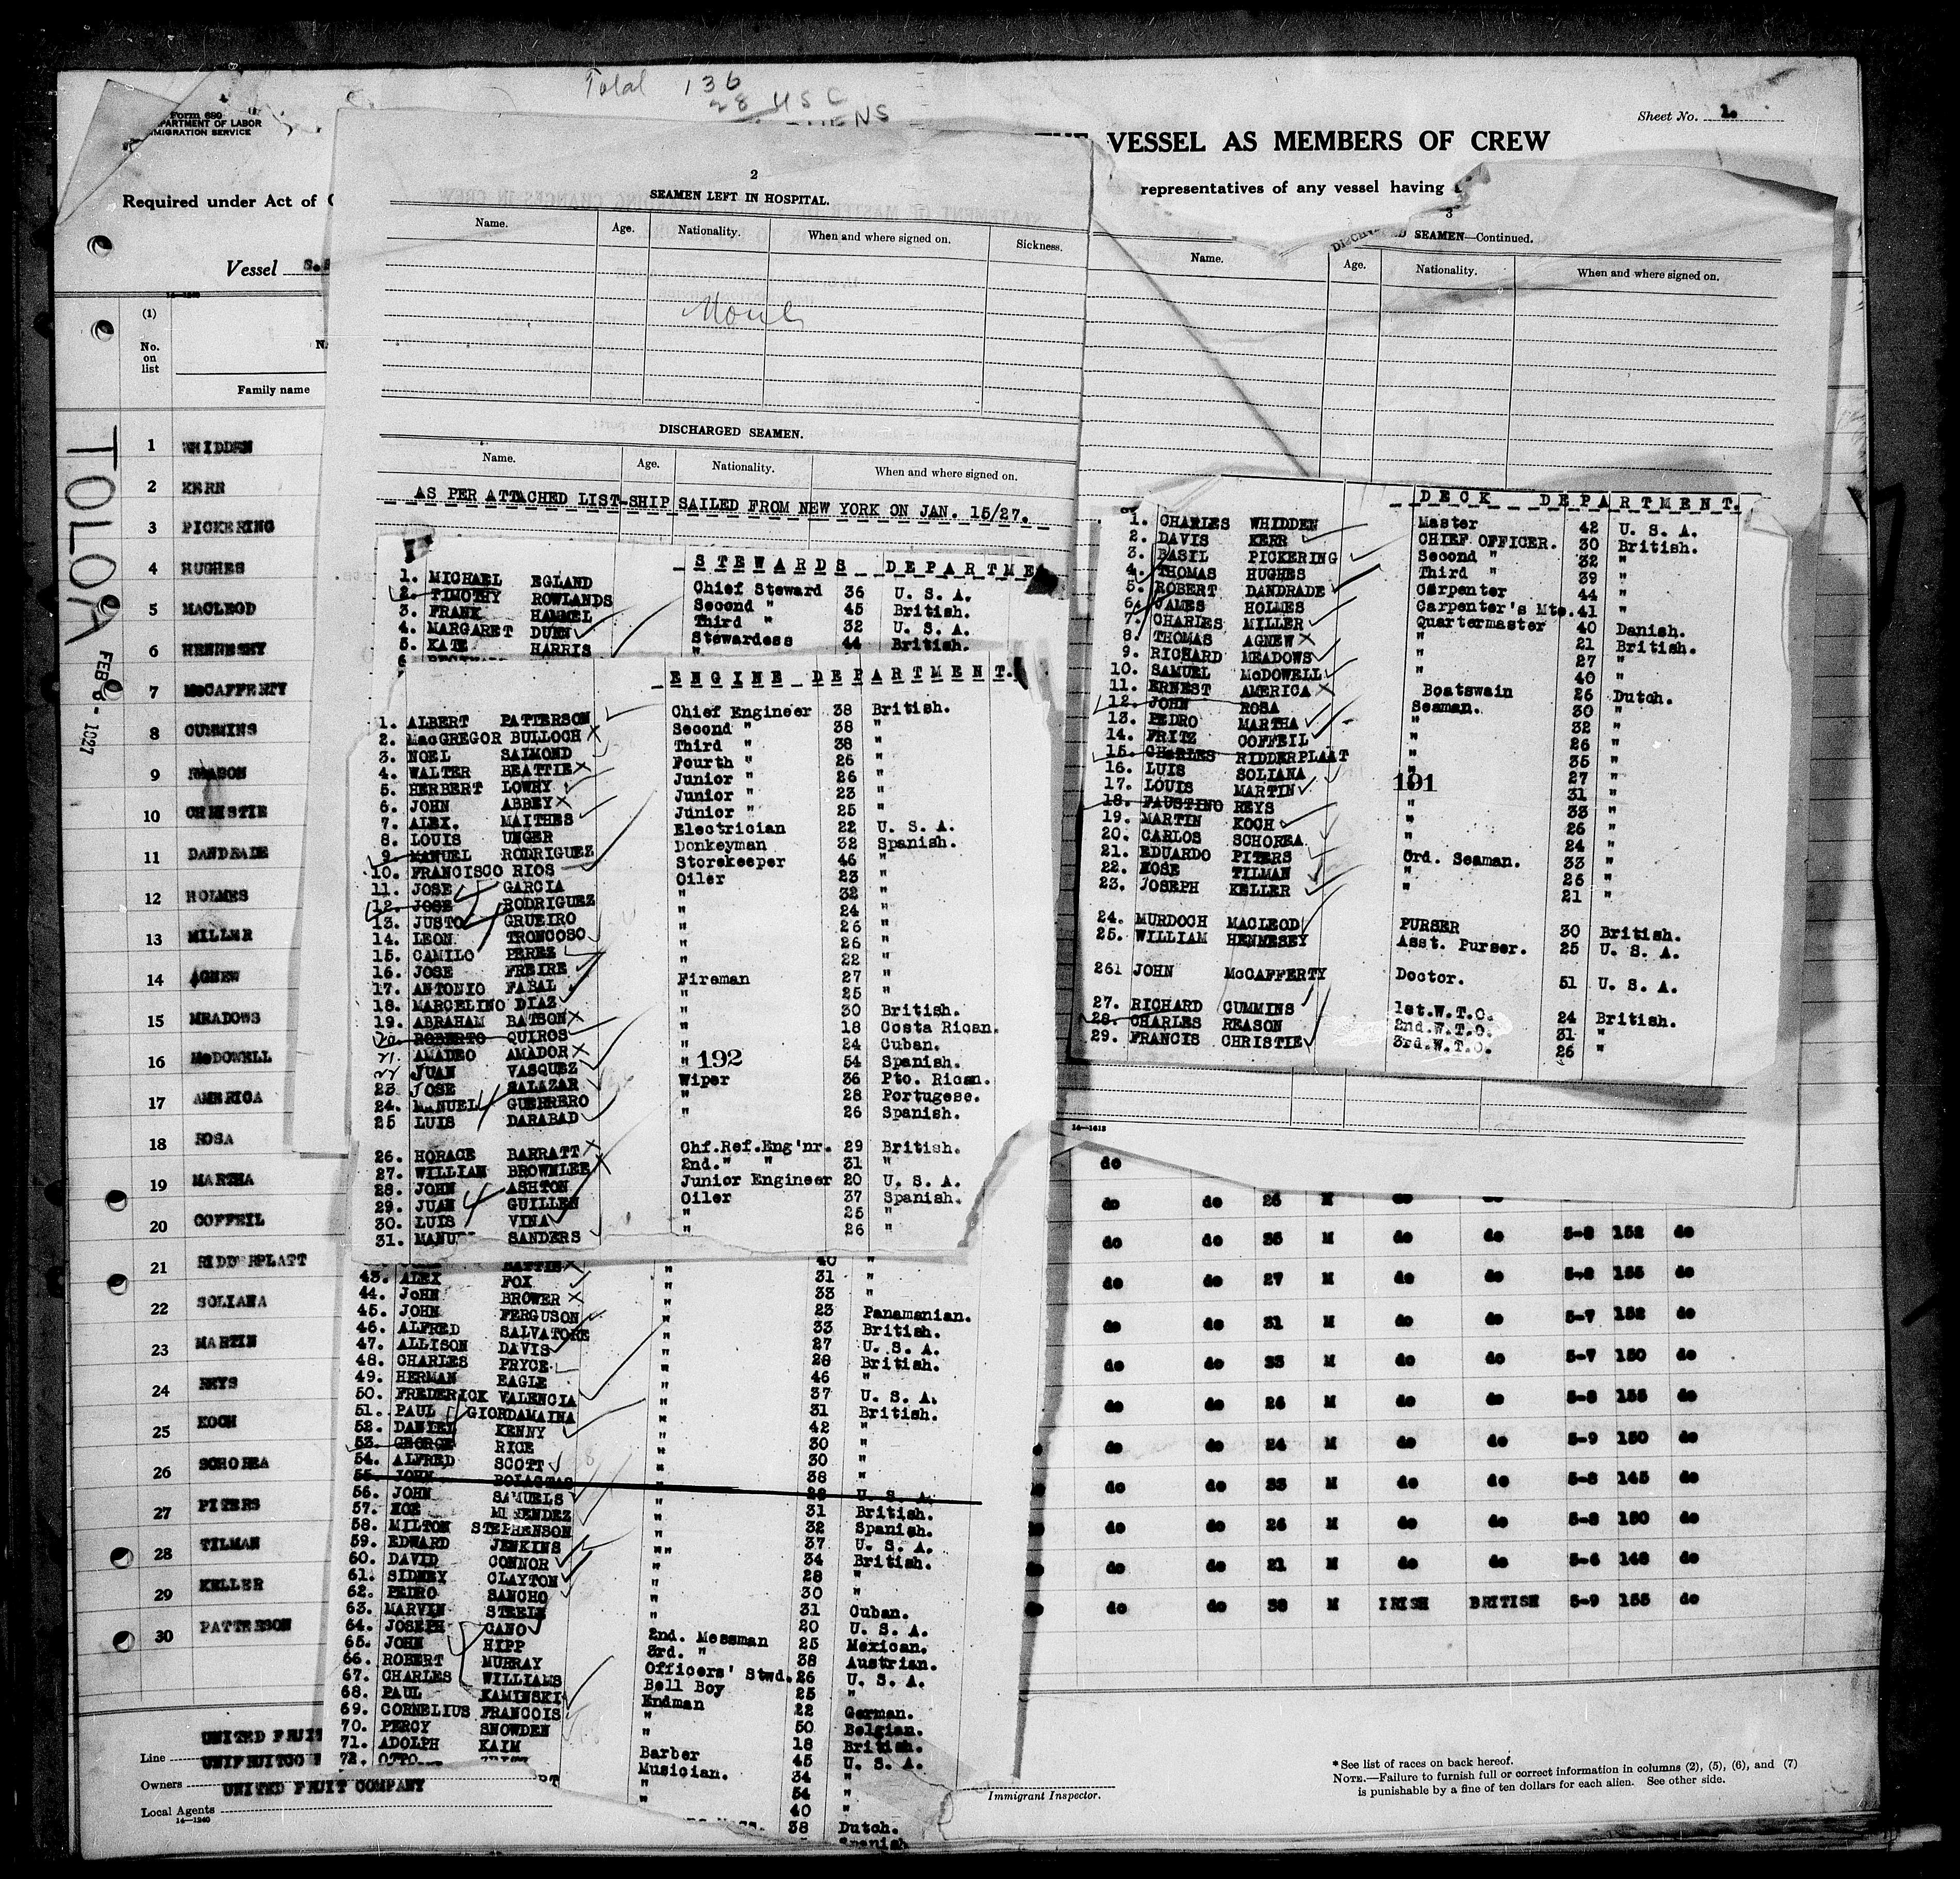 Total 136
28 USC
Form 680
DEPARTMENT OF LABOR
IMMIGRATION SERVICE
Sheet No. 1.
VESSEL AS MEMBERS OF CREW
Required under Act of
representatives of any vessel having
Vessel S.S
(1)
No. on list
Family name
TOLOA
FEB 8 - 1927
1 WHIDDEN
2 KERR
3 PICKERING
4 HUGHES
5 MACLEOD
6 HENNESEY
7 McCAFFERTY
8 CUMMINS
9 REASON
10 CHRISTIE
11 DANDRADE
12 HOLMES
13 MILLER
14 AGNEW
15 MEADOWS
16 McDOWELL
17 AMERICA
18 ROSA
19 MARTHA
20 COFFEIL
21 RIDDERPLATT
22 SOLIANA
23 MARTIN
24 REYS
25 KOCH
26 SCHOREA
27 PITERS
28 TILMAN
29 KELLER
30 PATTERSON
2
SEAMEN LEFT IN HOSPITAL.
Name. Age. Nationality. When and where signed on. Sickness.
None
DISCHARGED SEAMEN.
Name. Age. Nationality. When and where signed on.
AS PER ATTACHED LIST-SHIP SAILED FROM NEW YORK ON JAN. 15/27.
STEWARDS DEPARTME
1. MICHAEL EGLAND Chief Steward 36 U. S. A.
2. TIMOTHY ROWLANDS Second " 45 British.
3. FRANK HAMMEL Third " 32 U. S. A.
4. MARGARET DUNN Stewardess 44 British.
5. KATE HARRIS "
6
ENGINE DEPARTMENT.
1. ALBERT PATTERSON Chief Engineer 38 British.
2. MacGREGOR BULLOCH Second " 38 "
3. NOEL SALMOND Third " 38 "
4. WALTER BEATTIE Fourth " 26 "
5. HERBERT LOWRY Junior " 26 "
6. JOHN ABBEY Junior " 23 "
7. ALEX. MAITHES Junior " 25 "
8. LOUIS UNGER Electrician 22 U. S. A.
9. MANUEL RODRIGUEZ Donkeyman 32 Spanish.
10. FRANCISCO RIOS Storekeeper 46 "
11. JOSE GARCIA Oiler 23 "
12. JOSE RODRIGUEZ " 32 "
13. JUSTO GRUEIRO " 24 "
14. LEON TRONCOSO " 26 "
15. CAMILO PEREZ " 26 "
16. JOSE FREIRE " 22 "
17. ANTONIO FABAL Fireman 27 "
18. MARCELINO DIAZ " 25 "
19. ABRAHAM BATSON " 30 British.
20. ROBERTO QUIROS " 18 Costa Rican.
21. AMADEO AMADOR " 24 Cuban.
22 JUAN VASQUEZ " 54 Spanish.
192
23 JOSE SALAZAR Wiper 36 Pto. Rican.
24. MANUEL GUERRERO " 28 Portugese.
25 LUIS DARABAD " 26 Spanish.
26. HORACE BARRATT Chf.Ref.Eng'nr. 29 British.
27. WILLIAM BROWNLEE 2nd. " " 31 "
28. JOHN ASHTON Junior Engineer 20 U. S. A.
29. JUAN GUILLEN Oiler 37 Spanish.
30. LUIS VINA " 25 "
31. MANUEL SANDERS " 26 "
40 "
43. ALEX FOX " 31 "
44. JOHN BROWER " 33 "
45. JOHN FERGUSON " 23 Panamanian.
46. ALFRED SALVATORE " 33 British.
47. ALLISON DAVIS " 27 U. S. A.
48. CHARLES PRYCE " 28 British.
49. HERMAN EAGLE " 46 "
50. FREDERICK VALENCIA " 37 U. S. A.
51. PAUL GIORDAMAINA " 31 British.
52. DANIEL KENNY " 42 "
53. GEORGE RICE " 30 "
54. ALFRED SCOTT " 30 "
55. JOHN " 38 "
56. JOHN SAMUELS " 28 U. S. A.
57. NOE MENENDEZ " 31 British.
58. MILTON STEPHENSON " 32 Spanish.
59. EDWARD JENKINS " 37 U. S. A.
60. DAVID CONNOR " 34 British.
61. SIDNEY CLAYTON " 28 "
62. PEDRO SANCHO " 30 "
63. MARVIN STEELE " 31 Cuban.
64. JOSEPH CANO 2nd. Messman 20 U. S. A.
65. JOHN HIPP 3rd. " 25 Mexican.
66. ROBERT MURRAY Officers' Stwd. 38 Austrian.
67. CHARLES WILLIAMS Bell Boy 26 U. S. A.
68. PAUL KAMINSKI Endman 25 "
69. CORNELIUS FRANCOIS " 22 German.
70. PERCY SNOWDEN " 50 Belgian.
71. ADOLPH KAIM Barber 18 British.
72. OTTO Musician. 45 U. S. A.
" 34 "
" 54 "
40 "
38 Dutch.
Spanish
3
DISCHARGED SEAMEN—Continued.
Name. Age. Nationality. When and where signed on.
DECK DEPARTMENT.
1. CHARLES WHIDDEN Master 42 U. S. A.
2. DAVIS KERR CHIEF OFFICER. 30 British.
3. BASIL PICKERING Second " 32 "
4. THOMAS HUGHES Third " 39 "
5. ROBERT DANDRADE Carpenter 44 "
6. JAMES HOLMES Carpenter's Mte. 41 "
7. CHARLES MILLER Quartermaster 40 Danish.
8. THOMAS AGNEW " 21 British.
9. RICHARD MEADOWS " 27 "
10. SAMUEL McDOWELL " 40 "
11. ERNEST AMERICA Boatswain 26 Dutch.
12. JOHN ROSA Seaman. 30 "
13. PEDRO MARTHA " 32 "
14. FRITZ COFFEIL " 26 "
15. CHARLES RIDDERPLAAT " 35 "
16. LUIS SOLIANA " 27 "
17. LOUIS MARTIN " 31 "
191
18. FAUSTINO REYS " 33 "
19. MARTIN KOCH " 26 "
20. CARLOS SCHOREA " 24 "
21. EDUARDO PITERS Ord. Seaman. 33 "
22. ROSE TILMAN " 26 "
23. JOSEPH KELLER " 21 "
24. MURDOCH MACLEOD PURSER 30 British.
25. WILLIAM HENNESEY Asst. Purser. 25 U. S. A.
261 JOHN McCAFFERTY Doctor. 51 U. S. A.
27. RICHARD CUMMINS 1st.W.T.O. 24 British.
28. CHARLES REASON 2nd.W.T.O. 31 "
29. FRANCIS CHRISTIE 3rd.W.T.O. 26 "
14—1613
do
do do 26 M do do
do do 35 M do do 5-8 152 do
do do 27 M do do 5-8 155 do
do do 31 M do do 5-7 152 do
do do 33 M do do 5-7 150 do
do do 26 M do do 5-8 155 do
do do 24 M do do 5-9 150 do
do do 33 M do do 5-8 145 do
do do 26 M do do 5-8 150 do
do do 21 M do do 5-6 148 do
do do 38 M IRISH BRITISH 5-9 155 do
Line UNITED FRUIT
Owners UNIFRUITCO
Local Agents UNITED FRUIT COMPANY
14—1240
Immigrant Inspector.
* See list of races on back hereof.
NOTE.—Failure to furnish full or correct information in columns (2), (5), (6), and (7)
is punishable by a fine of ten dollars for each alien. See other side.